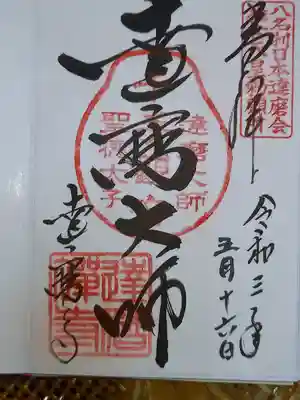 八名刹日本達磨会
令和三年
五月十六日
達磨大師
達磨大師
聖徳太子
達磨寺
達磨
禅寺